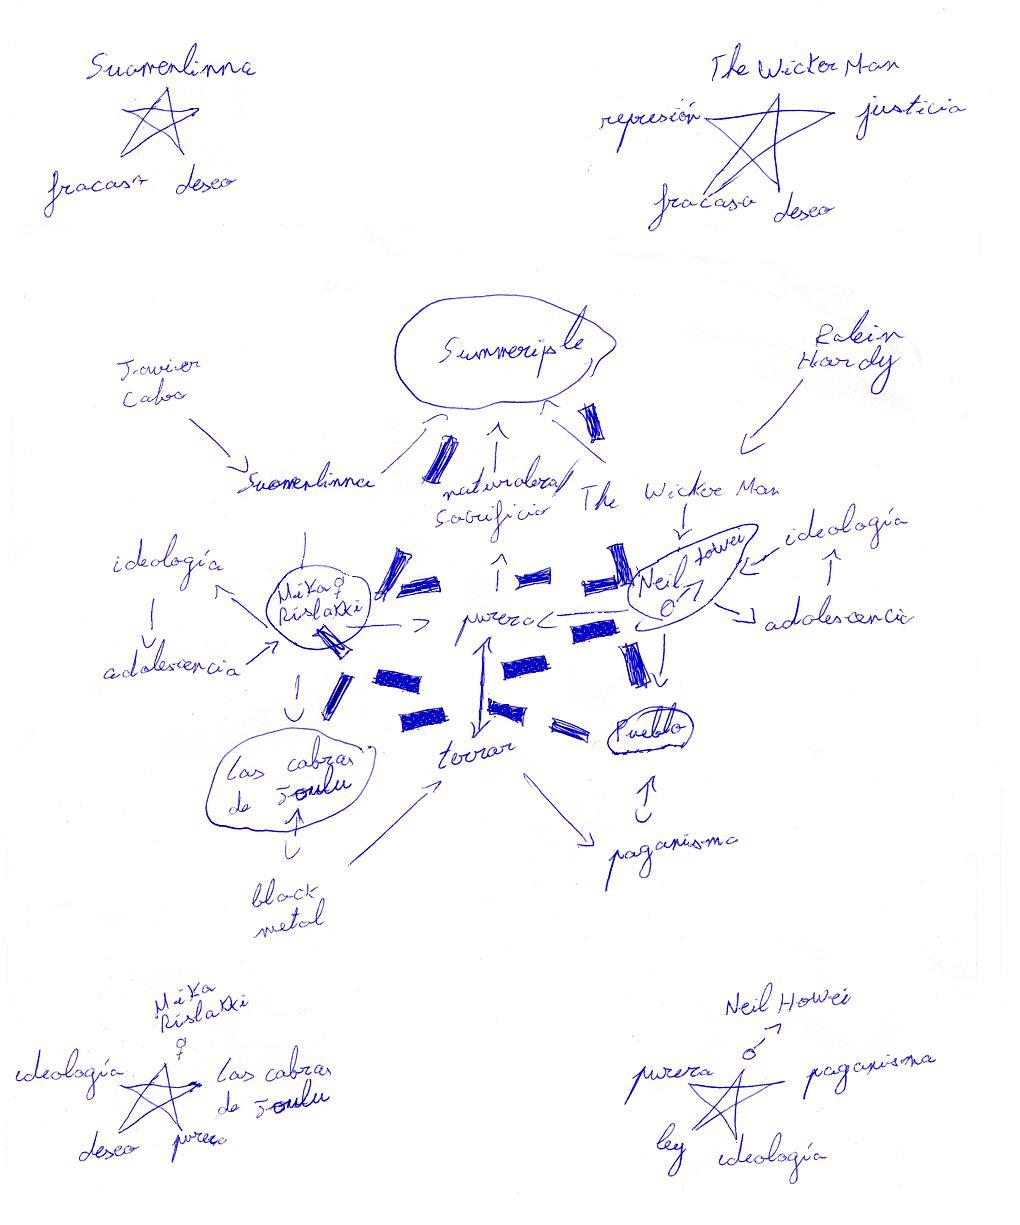 Suomenlinna
fracaso deseo
The Wicker Man
represión justicia
fracaso deseo
Summerisle
Robin
Hardy
Javier
Calvo
Suomenlinna
naturaleza/
sacrificio
The Wicker Man
ideología
Mika ♀
Rislakki
adolescencia
pureza
Neil Howei
♂
ideología
adolescencia
Las cabras
de Joulu
terror
Pueblo
black
metal
paganismo
Mika
Rislakki
♀
ideología
Las cabras
de Joulu
deseo pureza
Neil Howei
♂
pureza paganismo
ley ideología